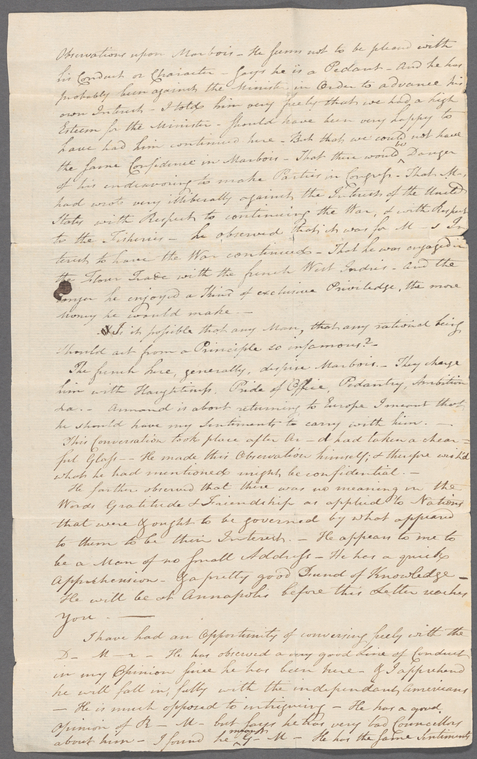 Observations upon Marbois - He seems not to be pleased with
his Conduct or Character - Says he is a Pedant - And he has
probably been against the Minister in Order to advance his
own Interest - I told him very freely that we had a high
Esteem for the Minister - Should have been very happy to
have had him continued here - But that we could not have
the same Confidence in Marbois - That there would be Danger
of his endeavouring to make Parties in Congress - That M.
had wrote very illiberally against the Interests of the United
States with Respect to continuing the War, & with Respect
to the Fisheries - he observed that it was for M - s In
terest to have the War continued - That he was engaged in
the Flour Trade with the french West Indies - and the
longer he enjoyed a Kind of exclusive Priviledge, the more
Money he would make -
Is it possible that any Man, that any rational being,
should act from a Principle so infamous? -
The french here, generally, despise Marbois - They charge
him with Haughtiness, Pride of Office, Pedantry, Ambition
&a. - Armand is about returning to Europe I meant that
he should have my Sentiments to carry with him. -
This Conversation took place after Ar - d had taken a chear-
ful Glass - He made this Observation himself & therefore wished
what he had mentioned might be confidential -
He farther observed that there was no meaning in the
Words Gratitude & Friendship as applied to Nations
that were & ought to be governed by what appeared
to them to be their Interest. - He appears to me to
be a Man of no small Address - He has a quick
Apprehension - & a pretty good Fund of Knowledge -
He will be at Annapolis before this Letter reaches
You -
I have had an Opportunity of conversing freely with the
D - M - r - He has observed a very good Line of Conduct
in my Opinion since he has been here - & I apprehend
he will fall in, fully with the independant Americans
- He is much opposed to intriguing - He has a good
Opinion of R - M - but says he has very bad Councellors
about him - I found he meant G - M - He has the same Sentiments